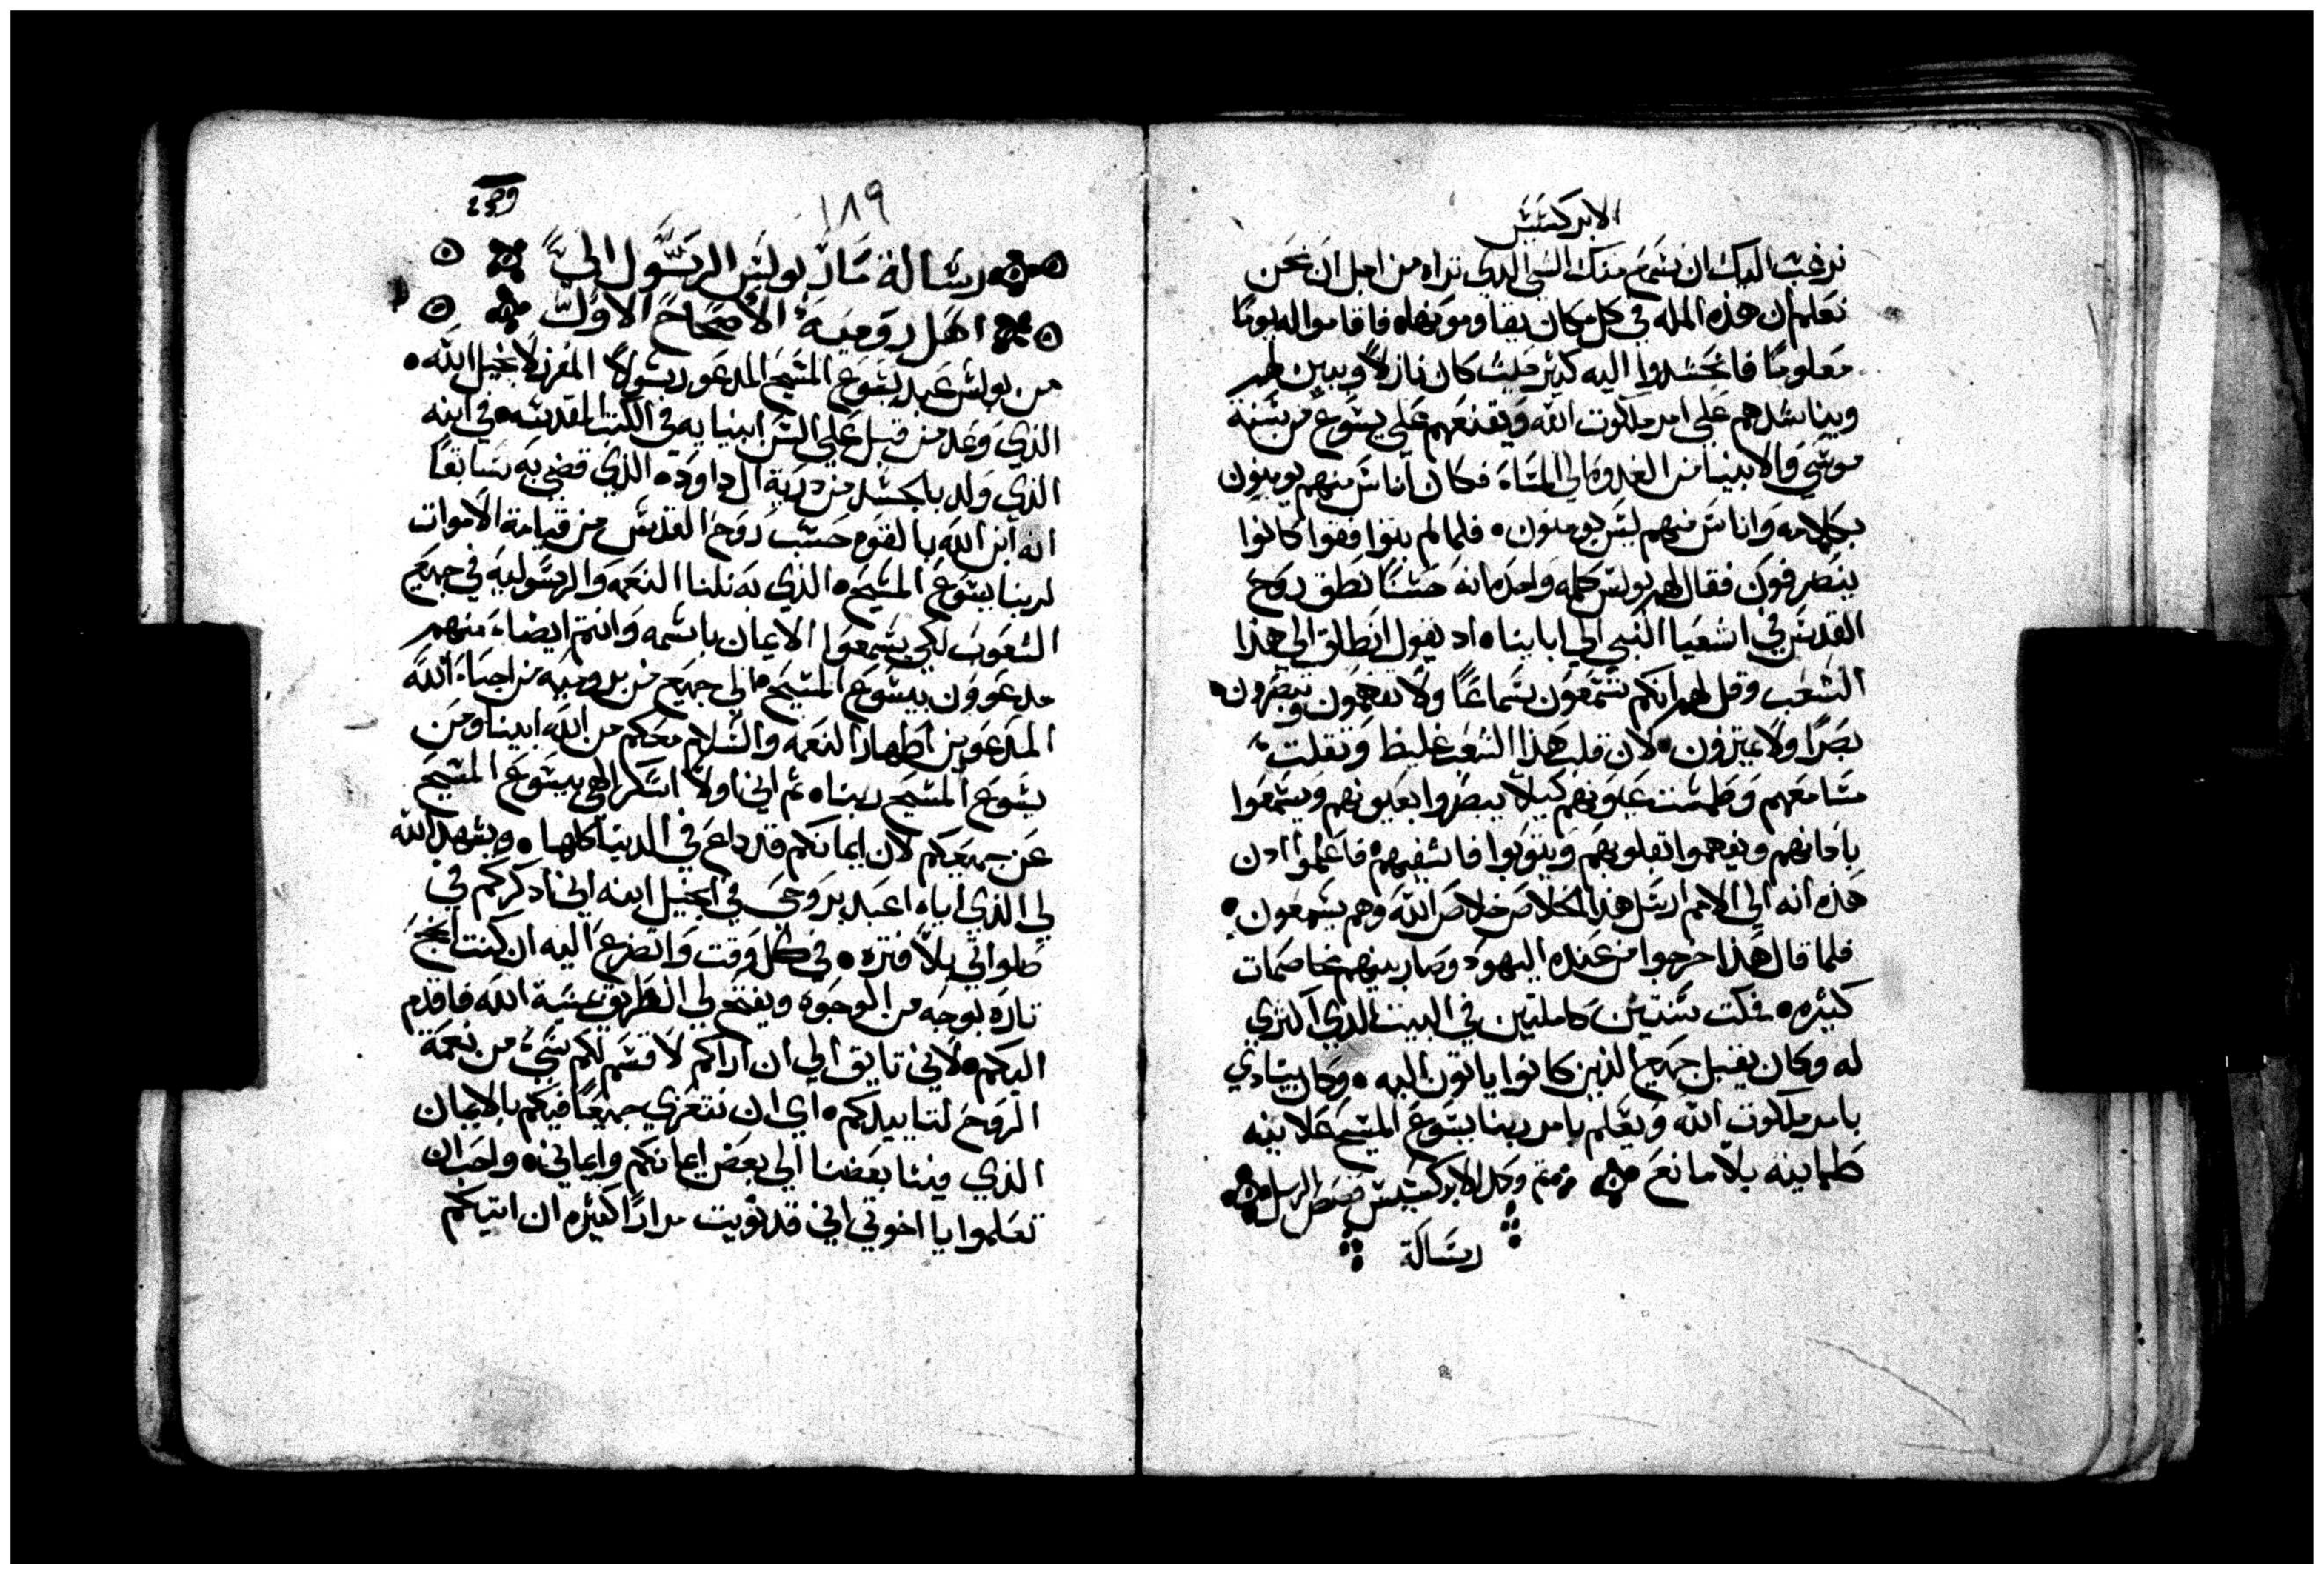 الابركسيس
نرغب اليك ان نسمع منك الشي الدي تراه من اجل ان نحن
نعلم ان هذه المله في كل مكان يقاوموها فاقاموا له يومًا
معلومًا فاتحشدوا اليه كثير حيث كان نازلاً ويبين لهم
ويناشدهم على امر ملكوت الله ويقنعهم على يسوع من سنة
موسي والانبيا من الغدوه الي المساء فكان اناس منهم يومنون
بكلامه واناس منهم ليس يومنون فلما لم يتوافقوا كانوا
ينصرفون فقال لهم بولس كلمه واحده انه حسنًا نطق روح
القدس في اشعيا النبي الي ابابنا اد يقول انطلق الي هذا
الشعب وقل لهم انكم تسمعون سماعًا ولا تفهمون وتبصرون
بصرًا ولا تميزون لان قلب هذا الشعب غليظ وثقلت
مسامعهم وطمست عيونهم كيلا يبصروا بعيونهم ويسمعوا
باذانهم ويفهموا بقلوبهم ويتوبوا فاشفيهم فاعلموا ادن
هذه انه الي الامم ارسل هذا الخلاص خلاص الله وهم يسمعون
فلما قال هذا خرجوا من عنده اليهود وصار بينهم مخاصمات
كثيره فمكت سنتين كاملتين في البيت الدي اكتري
له وكان يقبل جميع الذين كانوا ياتون اليه وكان ينادي
بامر ملكوت الله ويعلم بامر ربنا يسوع المسيح علانيه
طمانينه بلا مانع تم وكمل الابركسيس قصص الرسل
رسالة
١٨٩
رسالة مار بولس الرسول الى
اهل روميه الاصحاح الاول
من بولس عبد يسوع المسيح المدعو رسولاً المفرز لانجيل الله
الذي وعد من قبل علي السن انبيايه في الكتب المقدسه في ابنه
الذي ولد بالجسد من درية ال داوده الذي قضي به سابقًا
انه ابن الله بالقوه حسب روح القدس من قيامة الاموات
لربنا يسوع المسيح الذي به نلنا النعمه والرسوليه في جميع
الشعوب لكي يسمعوا الايمان باسمه وانتم ايضاء منهم
مدعوون بيسوع المسيح الي جميع من بروميه من احباء الله
المدعوين اطهار النعمه والسلام معكم من الله ابينا ومن
يسوع المسيح ربنا ثم اني اولاً اشكر الهي بيسوع المسيح
عن جميعكم لان ايمانكم قد داع في الدنيا كلها ويشهد الله
لي الذي اياه اعبد بروحي في انجيل ابنه اني ادكركم في
صلواتي بلا فتره في كل وقت واتضرع اليه ان كنت انجح
تارة بوجه من الوجوه ويفتح لي الطريق بمشية الله فاقدم
اليكم لاني تايق الي ان اراكم لاقسم لكم شيء من نعمة
الروح لتاييدكم اي ان نتعزي جميعًا فيكم بالايمان
الذي فينا بعضنا الي بعض ايمانكم وايماني واحب ان
تعلموا يا اخوتي اني قد نويت مرارًا كثيره ان اتيكم